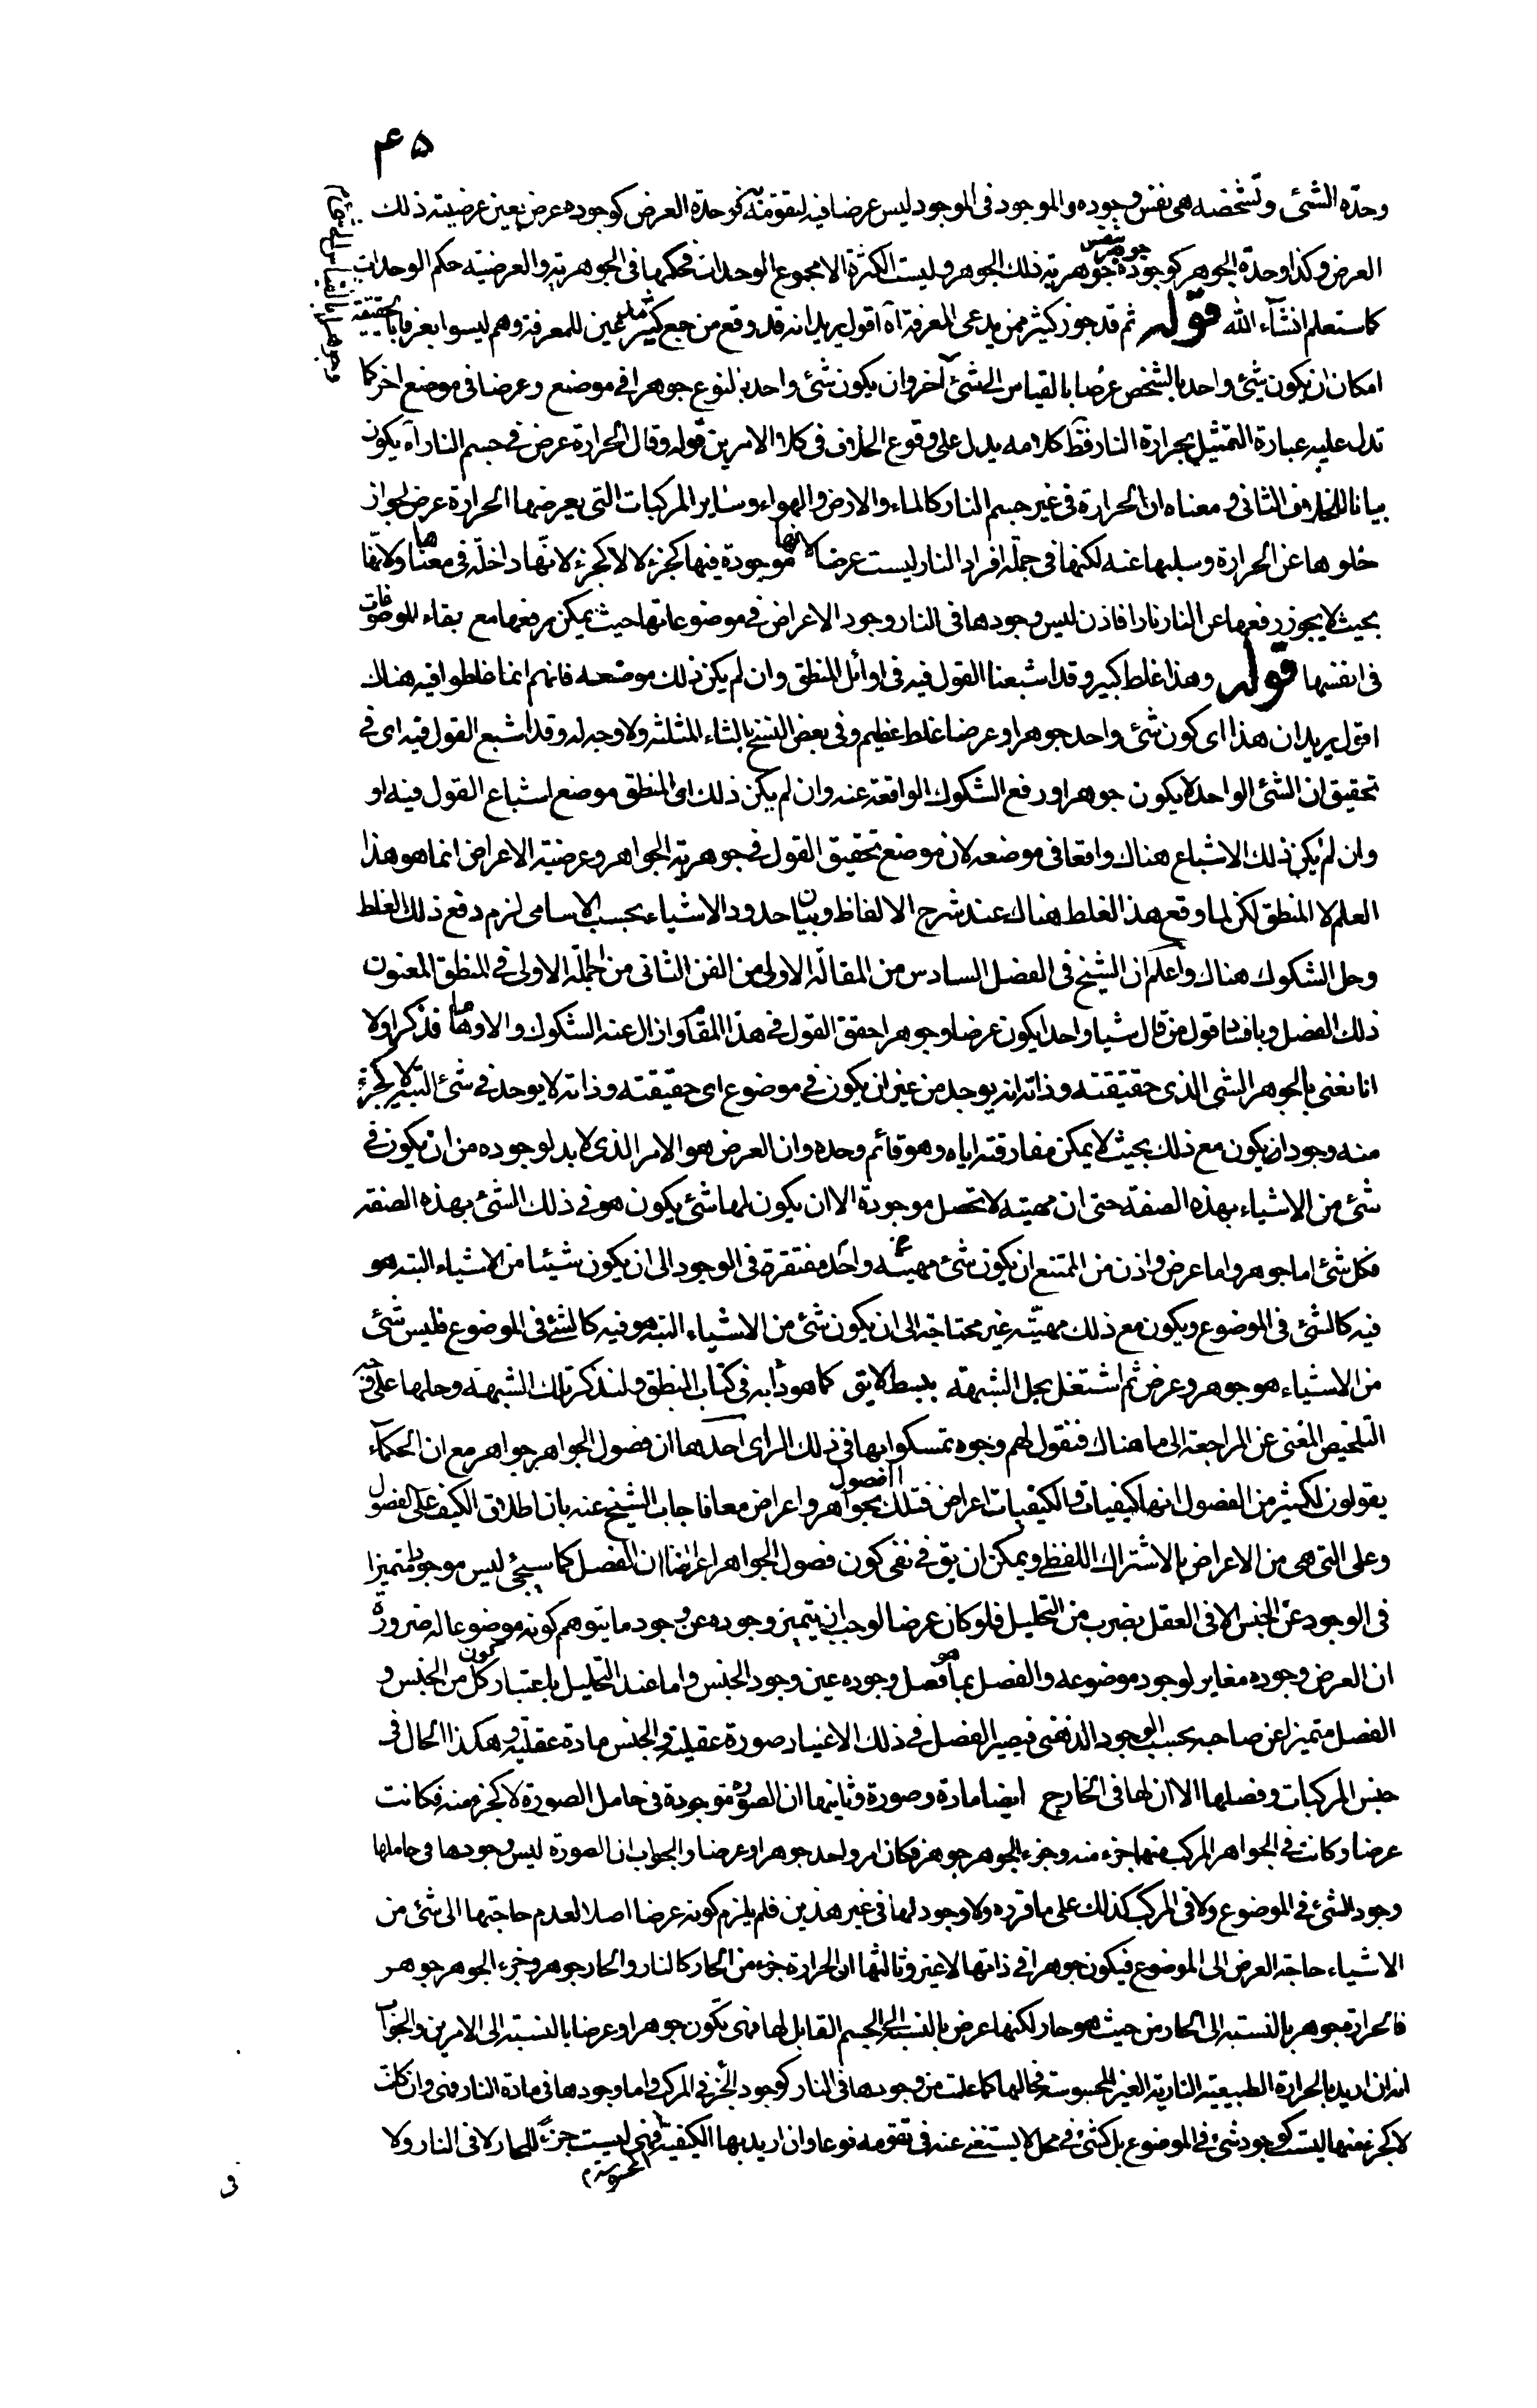 ۴۵
وحدة الشئ وتشخصه هى نفس وجوده والموجود فى الموجود ليس عرضا فيه لتقومه به كوحدة العرض كوجوده عرض بعين عرضيته ذلك
العرض وكذا وحدة الجوهر كوجوده جوهر بنفس جوهريته ذلك الجوهر وليست الكثرة الا مجموع الوحدات فحكمها فى الجوهرية والعرضية حكم الوحدات
كما ستعلم انشآء الله قوله ثم قد جوز كثير ممن يدعى المعرفة آه اقول يريد انه قد وقع من جمع كثير مدعين للمعرفة وهم ليسوا بعرفا بالحقيقة
امكان ان يكون شئ واحد بالشخص عرضا بالقياس الى شئ آخر وان يكون شئ واحد بالنوع جوهرا فى موضع وعرضا فى موضع اخر كما
تدل عليه عبارة التمثيل بحرارة النار فظ كلامه يدل على وقوع الخلاف فى كلا الامرين قوله وقال الحرارة عرض فى جسم النار آه يكون
بيانا للخلاف الثانى ومعناه ان الحرارة فى غير جسم النار كالماء والارض والهواء وساير المركبات التى يعرضها الحرارة عرض لجواز
خلوها عن الحرارة وسلبها عنه لكنها فى جملة افراد النار ليست عرضا لانها موجودة فيها كجزء لا لا كجزء لانها داخلة فى معناها ولانها
بحيث لا يجوز رفعها عن النار نارا فاذن ليس وجودها فى النار وجود الاعراض فى موضوعاتها حيث يمكن رفعها مع بقاء الموضوعات
فى انفسها قوله وهذا غلط كبير وقد اشبعنا القول فيه فى اوائل المنطق وان لم يكن ذلك موضعه فانهم انما غلطوا فيه هناك
اقول يريد ان هذا اى كون شئ واحد جوهرا وعرضا غلط عظيم وفى بعض النسخ بالثاء المثلثة ولا وجه له وقد اشبع القول فيه اى فى
تحقيق ان الشئ الواحد لا يكون جوهرا ورفع الشكوك الواقعة عنه وان لم يكن ذلك اى المنطق موضع اشباع القول فيه او
وان لم يكن ذلك الاشباع هناك واقعا فى موضعه لان موضع تحقيق القول فى جوهرية الجواهر وعرضية الاعراض انما هو هذا
العلم لا المنطق لكن لما وقع هذا الغلط هناك عند شرح الالفاظ وبيان حدود الاشياء بحسب الاسامى لزم دفع ذلك الغلط
وحل الشكوك هناك واعلم ان الشيخ فى الفصل السادس من المقالة الاولى من الفن الثانى من الجملة الاولى فى المنطق المعنون
ذلك الفصل وبافساد قول من قال شيا واحدا يكون عرضا وجوهرا حقق القول فى هذا المقام وازال عنه الشكوك والاوهام فذكر اولا
انا نعنى بالجوهر الشى الذى حقيقته وذاته انه يوجد من غير ان يكون فى موضوع اى حقيقته وذاته لا يوجد فى شئ البتة لا كجزء
منه وجودا يكون مع ذلك بحيث لا يمكن مفارقته اياه وهو قائم وحده وان العرض هو الامر الذى لا بد لوجوده من ان يكون فى
شئ من الاشياء بهذه الصفة حتى ان مهيته لا تحصل موجودة الا ان يكون لها شئ يكون هو فى ذلك الشئ بهذه الصفة
فكل شئ اما جوهر واما عرض واذن من الممتنع ان يكون شئ مهيته واحدة مفتقرة فى الوجود الى ان يكون شيئا من الاشياء البتة هو
فيه كالشئ فى الموضوع ويكون مع ذلك مهيته غير محتاجة الى ان يكون شئ من الاشياء البتة هو فيه كالشئ فى الموضوع فليس شئ
من الاشياء هو جوهر وعرض ثم اشتغل بحل الشبهة ببسط لايق كما هو دأبه فى كتاب المنطق ولنذكر تلك الشبهة وحلها على وجه
التلخيص المغنى عن المراجعة الى ما هناك فنقول لهم وجوه تمسكوا بها فى ذلك الراى احدها ان فصول الجواهر جواهر مع ان الحكمآء
يقولون لكثير من الفصول انها كيفيات والكيفيات اعراض فتلك الفصول جواهر واعراض معا فاجاب الشيخ عنه بان اطلاق الكيف على الفصول
وعلى التى هى من الاعراض بالاشتراك اللفظى ويمكن ان يق فى نفى كون فصول الجواهر اعراضا ان الفصل كما سيجئ ليس موجودا متميزا
فى الوجود عن الجنس الا فى العقل بضرب من التحليل فلو كان عرضا لوجب ان يتميز وجوده عن وجود ما يتوهم كونه موضوعا له ضرورة
ان العرض وجوده مغاير لوجود موضوعه والفصل بما هو فصل وجوده عين وجود الجنس واما عند التحليل باعتبار كون كل من الجنس و
الفصل متميزا عن صاحبه بحسب الوجود الذهنى فيصير الفصل فى ذلك الاعتبار صورة عقلية والجنس مادة عقلية وهكذا الحال فى
جنس المركبات وفصلها الا ان لها فى الخارج ايضا مادة وصورة وثانيها ان الصورة موجودة فى حامل الصورة لا كجزء منه فكانت
عرضا وكانت فى الجواهر المركب منها جزء منه وجزء الجوهر جوهر فكان امر واحد جوهرا وعرضا والجواب ان الصورة ليس وجودها فى حاملها
وجود الشئ فى الموضوع ولا فى المركب كذلك على ما قرره ولا وجود لها فى غير هذين فلم يلزم كونه عرضا اصلا لعدم حاجتها الى شئ من
الاشياء حاجة العرض الى الموضوع فيكون جوهرا فى ذاتها لا غير وثالثها ان الحرارة جزء من الحار كالنار والحار جوهر وجزء الجوهر جوهر
فالحرارة جوهر بالنسبة الى الحار من حيث هو حار لكنها عرض بالنسبة الى الجسم القابل لها فهى تكون جوهرا وعرضا بالنسبة الى الامرين والجواب
انه ان اريد بالحرارة الطبيعية النارية الغير المحسوسة فحالها كما علمت من وجودها فى النار كوجود الجزء فى المركب واما وجودها فى مادة النار فهى وان كانت
لا كجزء منها ليست كوجود شئ فى الموضوع بل كشئ فى محل لا يستغنى عنه فى تقومه نوعا وان اريد بها الكيفية المحسوسة فهى ليست جزءً للحار لا فى النار ولا
فى
وجوهرا بالقياس الى